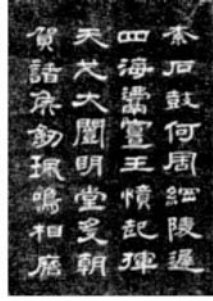 柰石鼓何周綱陵遲
四海沸宣王憤起揮
天戈大開明堂受朝
賀諸侯釼珮鳴相磨